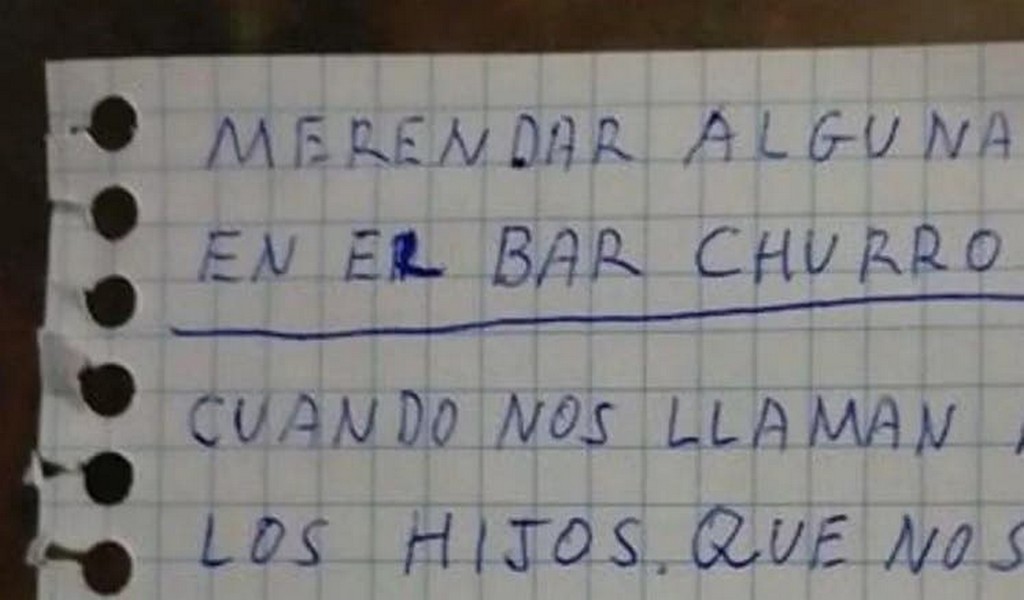 MERENDAR ALGUNA
EN EL BAR CHURRO
CUANDO NOS LLAMAN
LOS HIJOS. QUE NOS